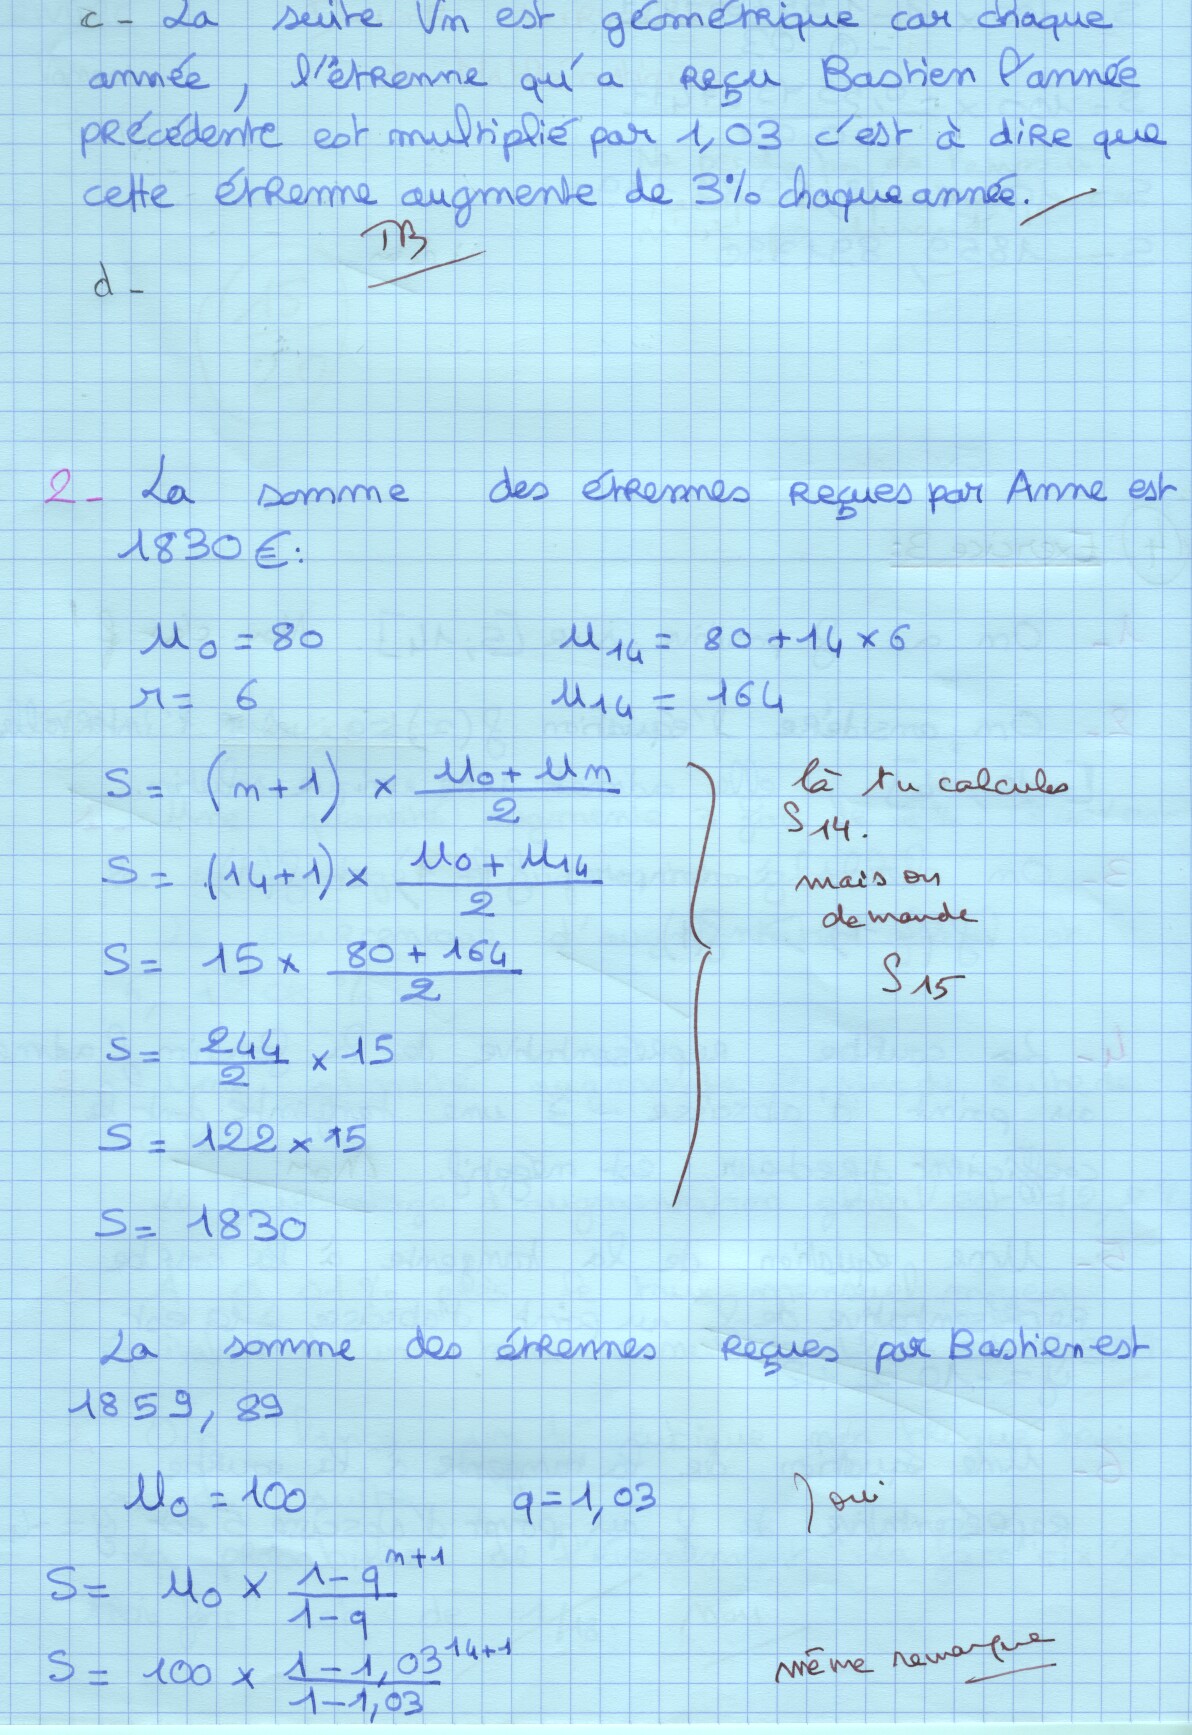 c- La suite Vn est géométrique car chaque
année, l'étrenne qu'a reçu Bastien l'année
précédente est multiplié par 1,03 c'est à dire que
cette étrenne augmente de 3% chaque année.
TB
d-
2- La somme des étrennes reçues par Anne est
1830 €:
u₀ = 80 u₁₄ = 80 + 14 × 6
r = 6 u₁₄ = 164
S = (n+1) × (u₀ + un)/2
S = (14+1) × (u₀ + u₁₄)/2
S = 15 × (80 + 164)/2
S = 244/2 × 15
S = 122 × 15
S = 1830
là tu calcules
S₁₄.
mais on
demande
S₁₅
La somme des étrennes reçues par Bastien est
1859,89
u₀ = 100 q = 1,03 } oui
S = u₀ × (1-q^(n+1))/(1-q)
S = 100 × (1-1,03^(14+1))/(1-1,03) même remarque